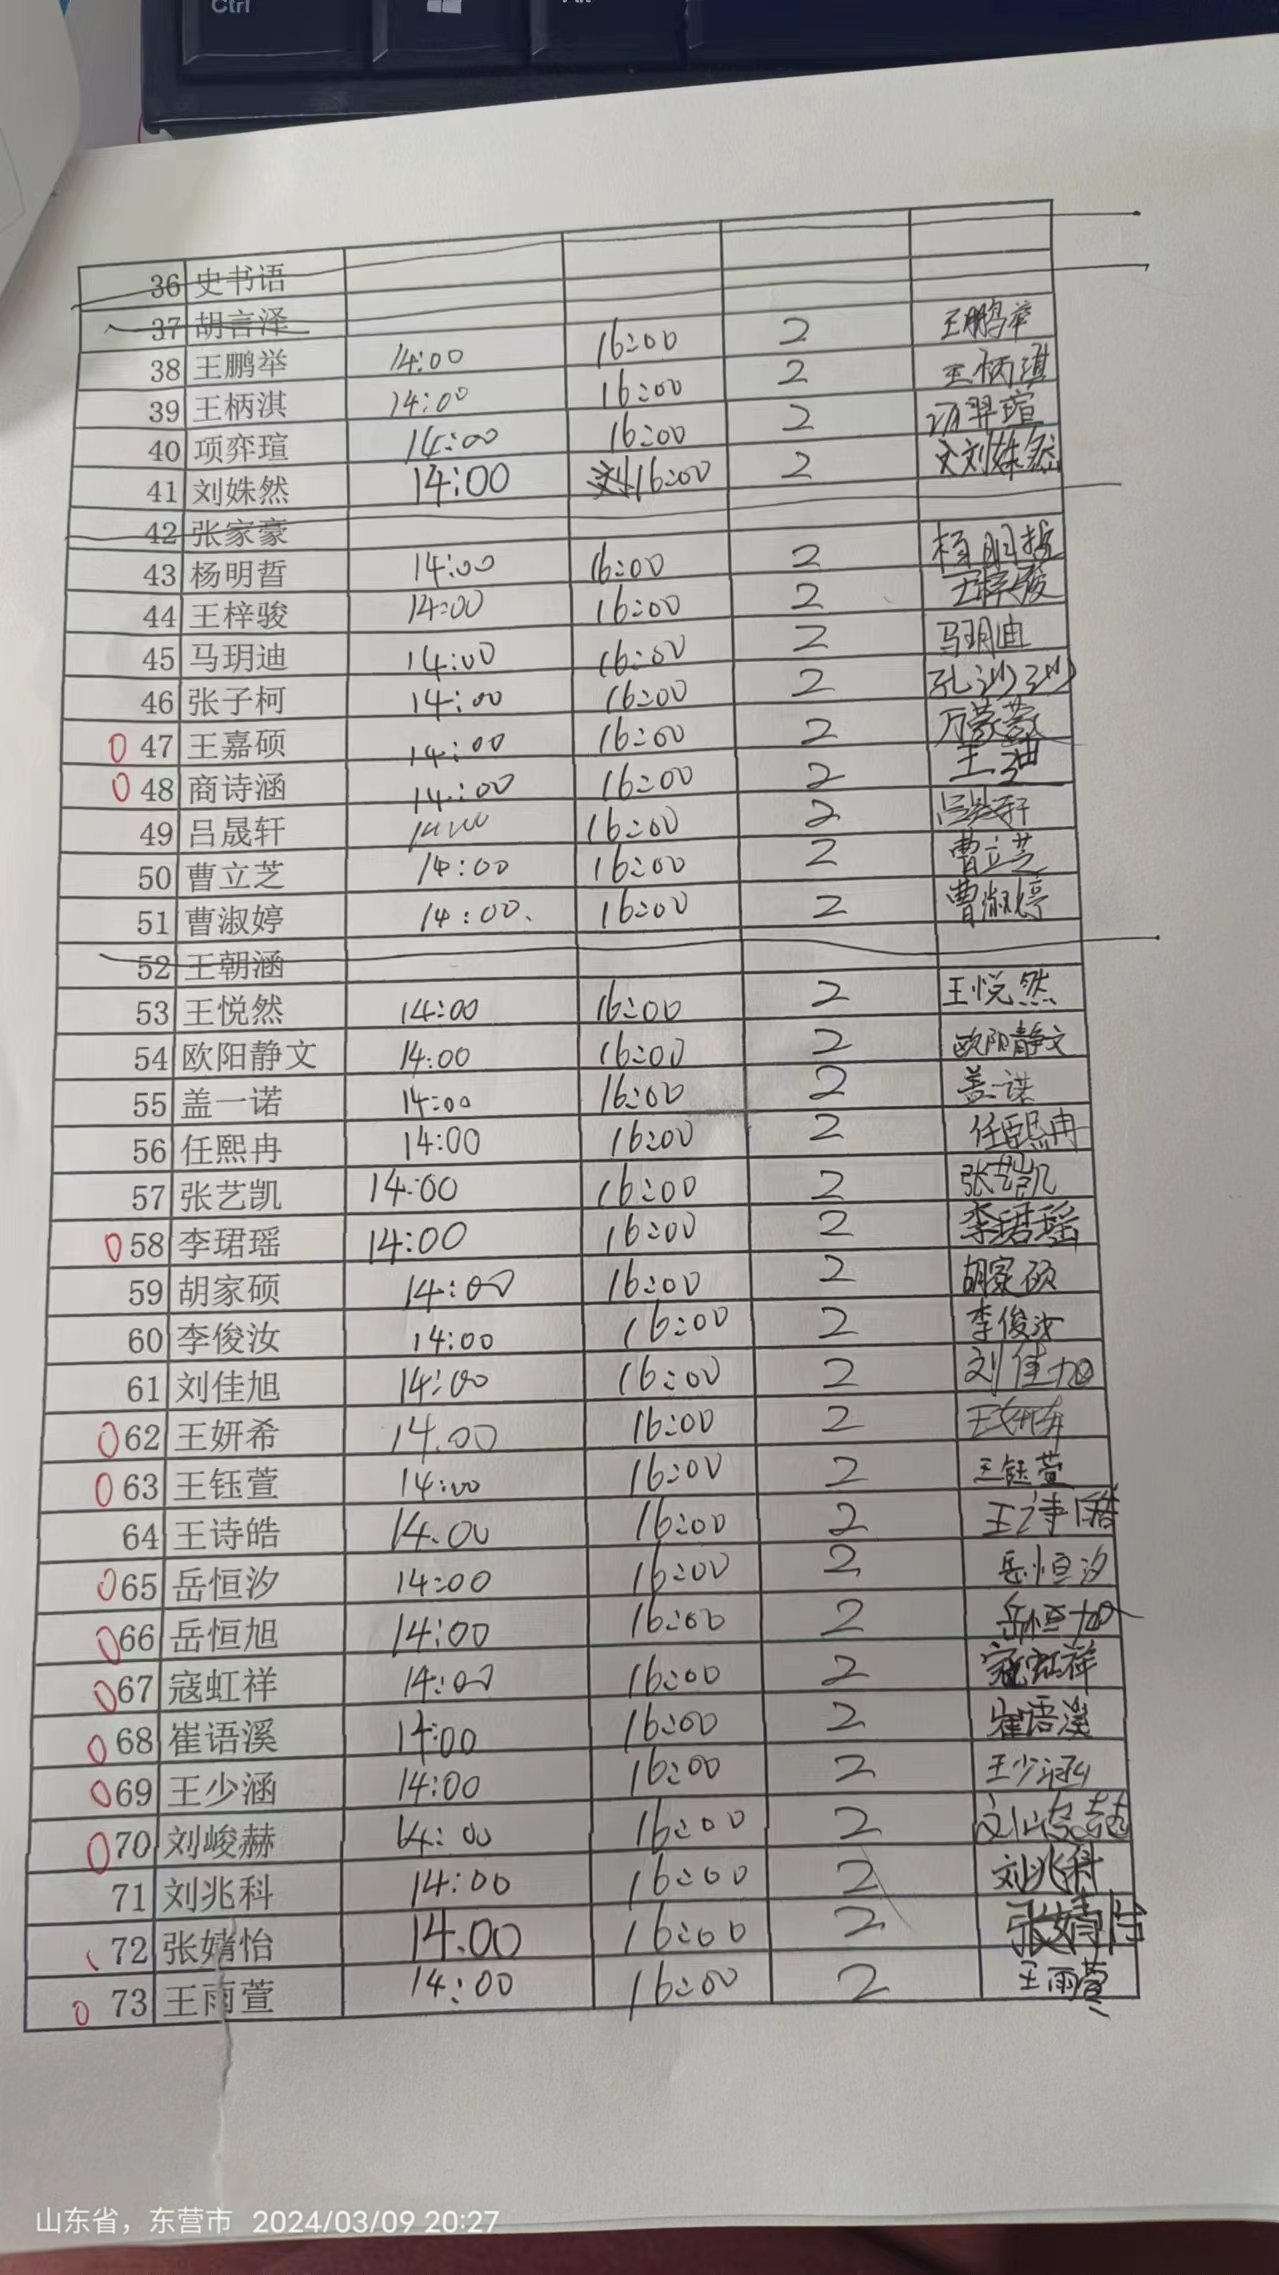 Ctrl
Alt
36 史书语
37 胡言泽
38 王鹏举 14:00 16:00 2 王鹏举
39 王柄淇 14:00 16:00 2 王柄淇
40 项弈瑄 14:00 16:00 2
41 刘姝然 14:00 16:00 2 刘姝然
42 张家豪
43 杨明哲 14:00 16:00 2 杨明哲
44 王梓骏 14:00 16:00 2 王梓骏
45 马玥迪 14:00 16:00 2 马玥迪
46 张子柯 14:00 16:00 2 孔沙沙
0 47 王嘉硕 14:00 16:00 2 万蒙蒙
0 48 商诗涵 14:00 16:00 2
49 吕晟轩 14:00 16:00 2 吕晟轩
50 曹立芝 14:00 16:00 2 曹立芝
51 曹淑婷 14:00. 16:00 2 曹淑婷
52 王朝涵
53 王悦然 14:00 16:00 2 王悦然
54 欧阳静文 14:00 16:00 2 欧阳静文
55 盖一诺 14:00 16:00 2 盖一诺
56 任熙冉 14:00 16:00 2 任熙冉
57 张艺凯 14:00 16:00 2 张艺凯
0 58 李珺瑶 14:00 16:00 2 李珺瑶
59 胡家硕 14:00 16:00 2 胡家硕
60 李俊汝 14:00 16:00 2 李俊汝
61 刘佳旭 14:00 16:00 2 刘佳旭
0 62 王妍希 14.00 16:00 2 王妍希
0 63 王钰萱 14:00 16:00 2 王钰萱
64 王诗皓 14.00 16:00 2 王诗皓
0 65 岳恒汐 14:00 16:00 2 岳恒汐
0 66 岳恒旭 14:00 16:00 2 岳恒旭
0 67 寇虹祥 14:00 16:00 2 寇虹祥
0 68 崔语溪 14:00 16:00 2 崔语溪
0 69 王少涵 14:00 16:00 2 王少涵
0 70 刘峻赫 14:00 16:00 2 刘峻赫
71 刘兆科 14:00 16:00 2 刘兆科
72 张婧怡 14.00 16:00 2 张婧怡
0 73 王雨萱 14:00 16:00 2 王雨萱
山东省，东营市 2024/03/09 20:27